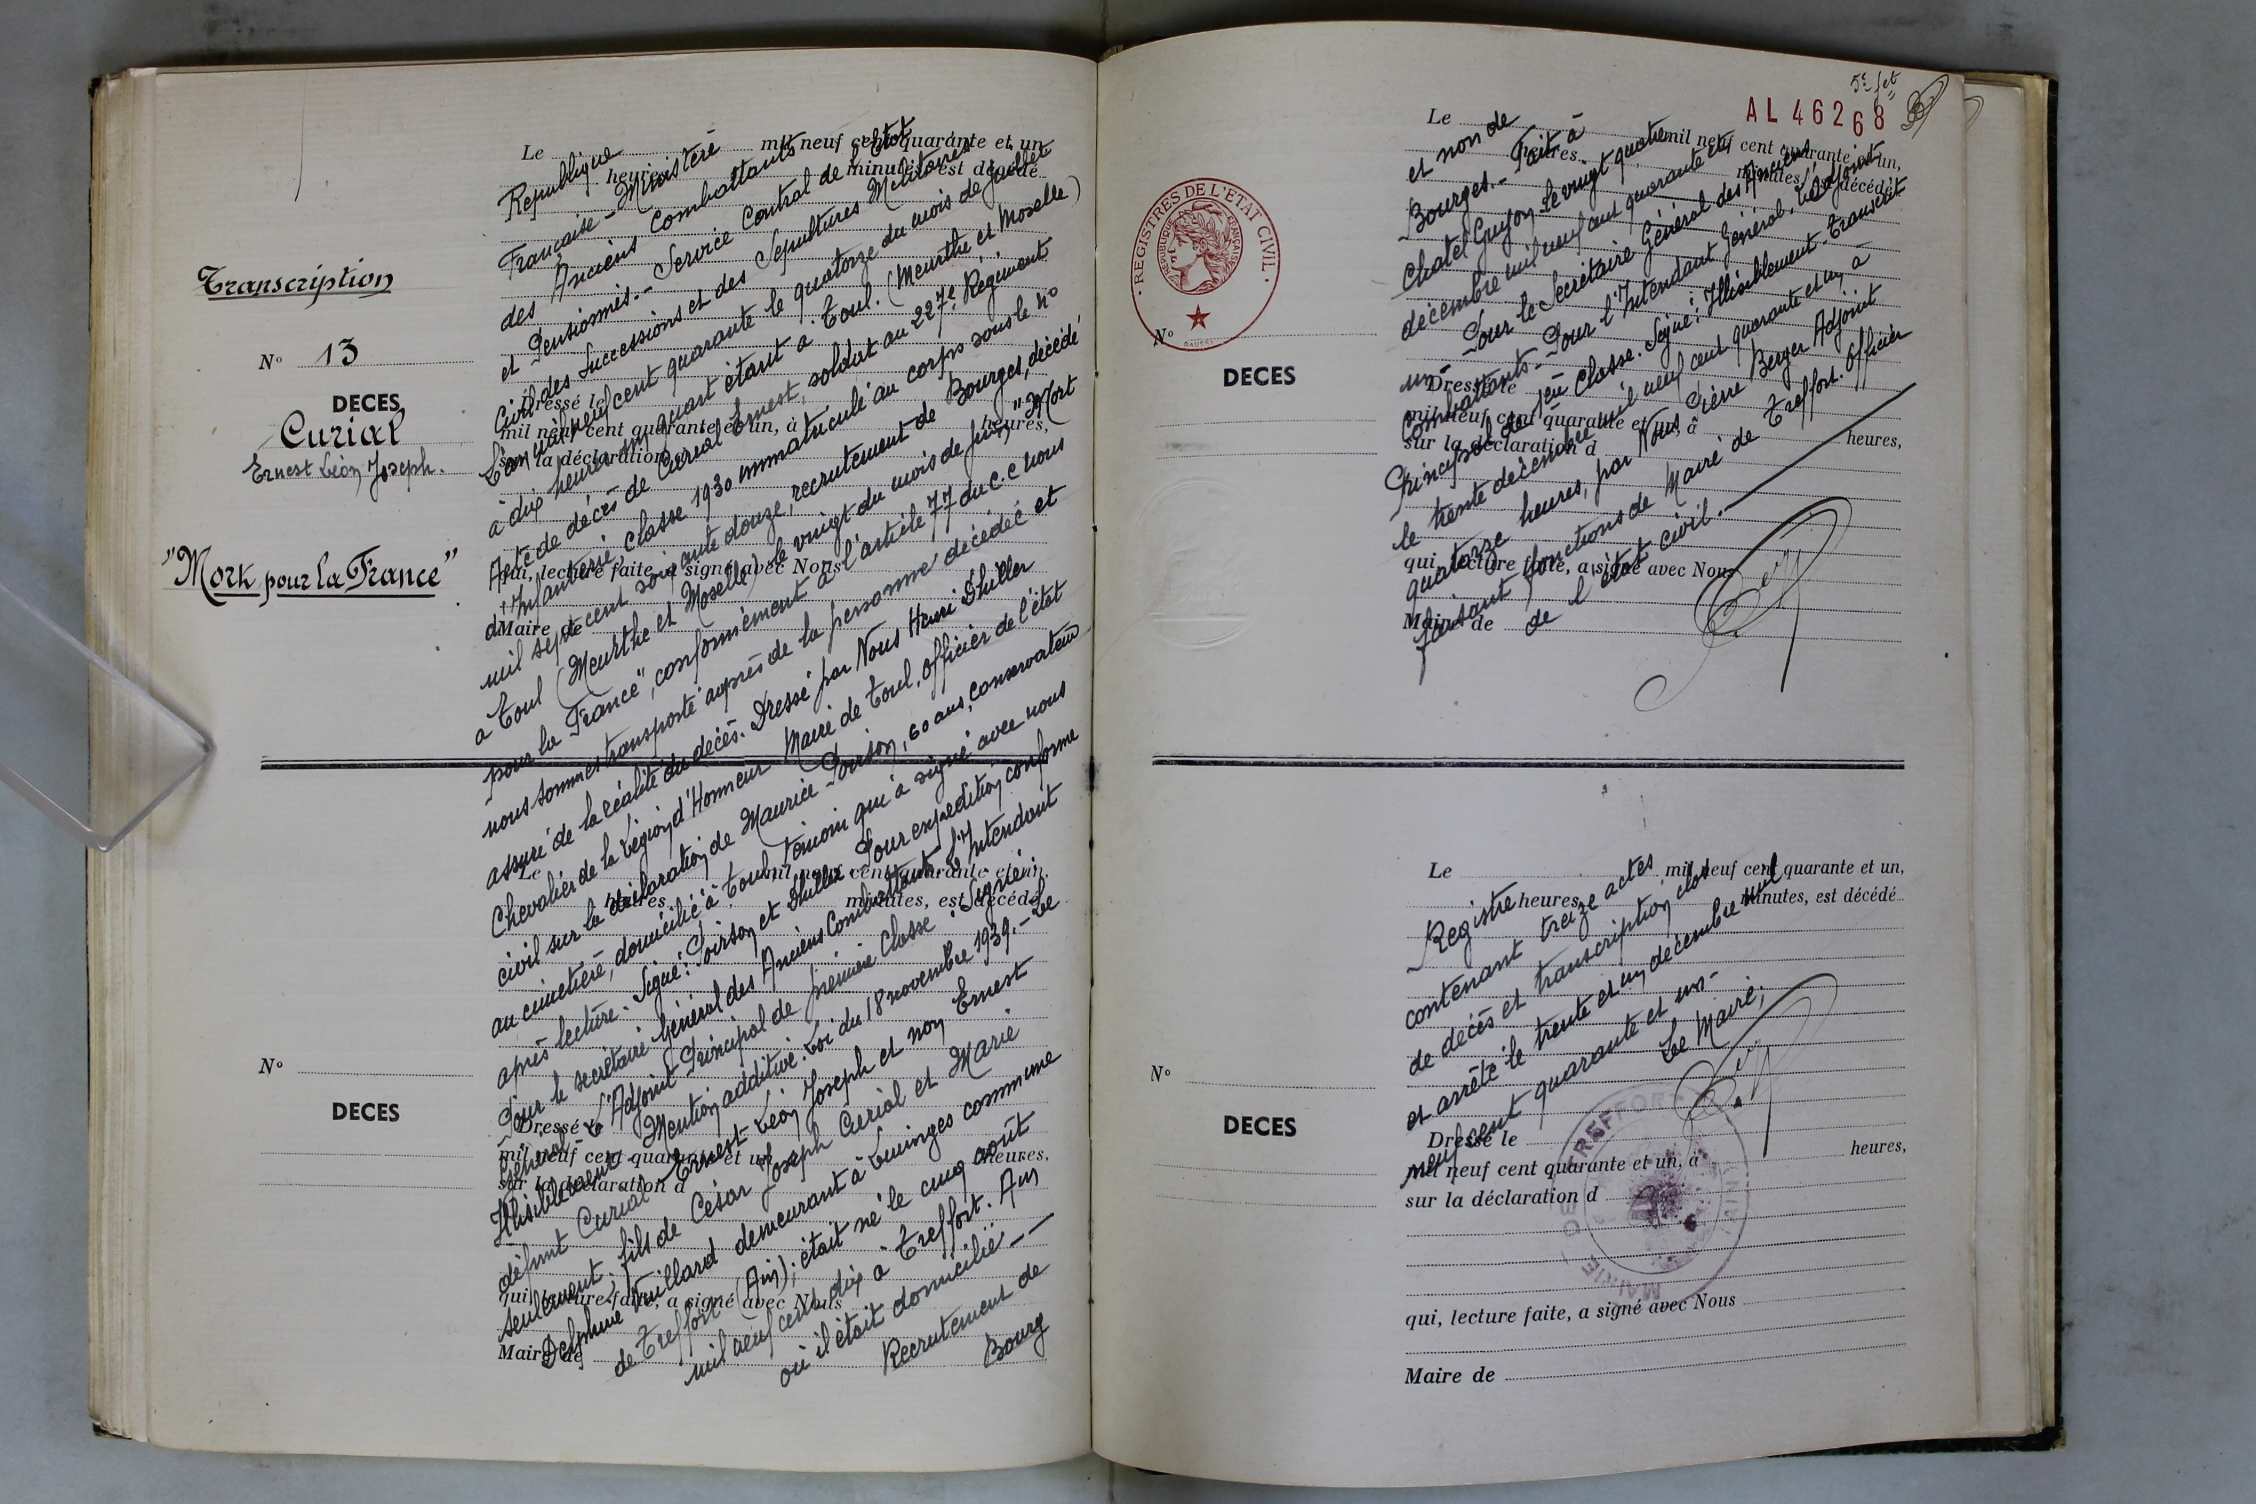 Transcription
N° 13
DECES
Curial
Ernest Léon Joseph.
"Mort pour la France"
Le mil neuf cent quarante et un
heures minutes est décédé
République
Française - Ministère
des Anciens Combattants
et Pensionnés. - Service Central de l'Etat
Civil des Successions et des Sépultures Militaires
L'an mil neuf cent quarante le quatorze du mois de juillet
à dix heures un quart étant à Toul. (Meurthe et Moselle)
Acte de décès de Curial Ernest, soldat au 227e Régiment
d'Infanterie, classe 1930 immatriculé au corps sous le n°
mil sept cent soixante douze, recrutement de Bourges, décédé
à Toul (Meurthe et Moselle) le vingt du mois de juin "Mort
pour la France", conformément à l'article 77 du c.c nous
nous sommes transporté auprès de la personne décédée et
assuré de la réalité du décès. Dressé par Nous Henri Dhuller
Chevalier de la Légion d'Honneur Maire de Toul, officier de l'état
civil sur la déclaration de Maurice Poirson, 60 ans, conservateur
au cimetière, domicilié à Toul, témoin qui a signé avec nous
après lecture. Signé: Poirson et Dhuller. Pour expédition conforme
Pour le secrétaire Général des Anciens Combattants L'Intendant
Général. L'Adjoint Principal de première Classe: Signé:
Illisiblement - Mention additive. Loi du 18 novembre 1939. - Le
défunt Curial Ernest Léon Joseph et non Ernest
seulement, fils de César Joseph Curial et Marie
Delphine Vuillard demeurant à Cuvinges commune
de Treffort (Ain); était né le cinq août
mil neuf cent dix à Treffort. Ain
où il était domicilié - -
Recrutement de
Bourg
Dressé le
mil neuf cent quarante et un, à heures,
sur la déclaration d
qui, lecture faite, a signé avec Nous
Maire de
Le mil neuf cent quarante et un,
heures minutes, est décédé
N°
DECES
Dressé le
mil neuf cent quarante et un heures,
sur la déclaration d
qui, lecture faite, a signé avec Nous
Maire de
AL 46268
REGISTRES DE L'ETAT CIVIL
REPUBLIQUE FRANÇAISE
N°
DECES
Le mil neuf cent quarante et un,
heures minutes, est décédé
et non de
Bourges. - Fait à
Chatel Guyon le vingt quatre
décembre mil neuf cent quarante et
un - Pour le Secrétaire Général des Anciens
Combattants - Pour l'Intendant Général, L'Adjoint
Principal de 1ère Classe. Signé: Illisiblement - Transcrit
le trente décembre mil neuf cent quarante et un à
quatorze heures, par Nous Pierre Berger Adjoint
faisant fonctions de Maire de Treffort. Officier
de l'état civil. -
Dressé le
mil neuf cent quarante et un, à heures,
sur la déclaration d
qui, lecture faite, a signé avec Nous
Maire de
Le mil neuf cent quarante et un,
heures minutes, est décédé
Registre
contenant treize actes
de décès et transcription, clos
et arrêté le trente et un décembre mil
neuf cent quarante et un -
Le Maire,
N°
DECES
Dressé le
mil neuf cent quarante et un, à heures,
sur la déclaration d
MAIRIE DE TREFFORT (AIN)
qui, lecture faite, a signé avec Nous
Maire de